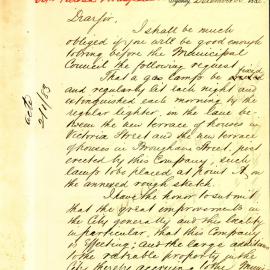 Sydney December
Dear Sir,
I shall be much
obliged if you will be good enough
to bring before the Municipal
Council the following request
That a gas lamp be fixed
and regularly lit each night and
extinguished each morning by the
regular lighter, on the lane be-
tween the new terrace of houses in
Victoria Street and the new terrace
of houses in Brougham Street, just
erected by this Company, such
lamp to be placed at point A, on
the annexed rough sketch.
I have the honor to submit
that the great improvements to
the City generally and this locality
in particular, that this Company
is effecting; and the large addition
to the ratable property in the
City thereby accruing to the Mun